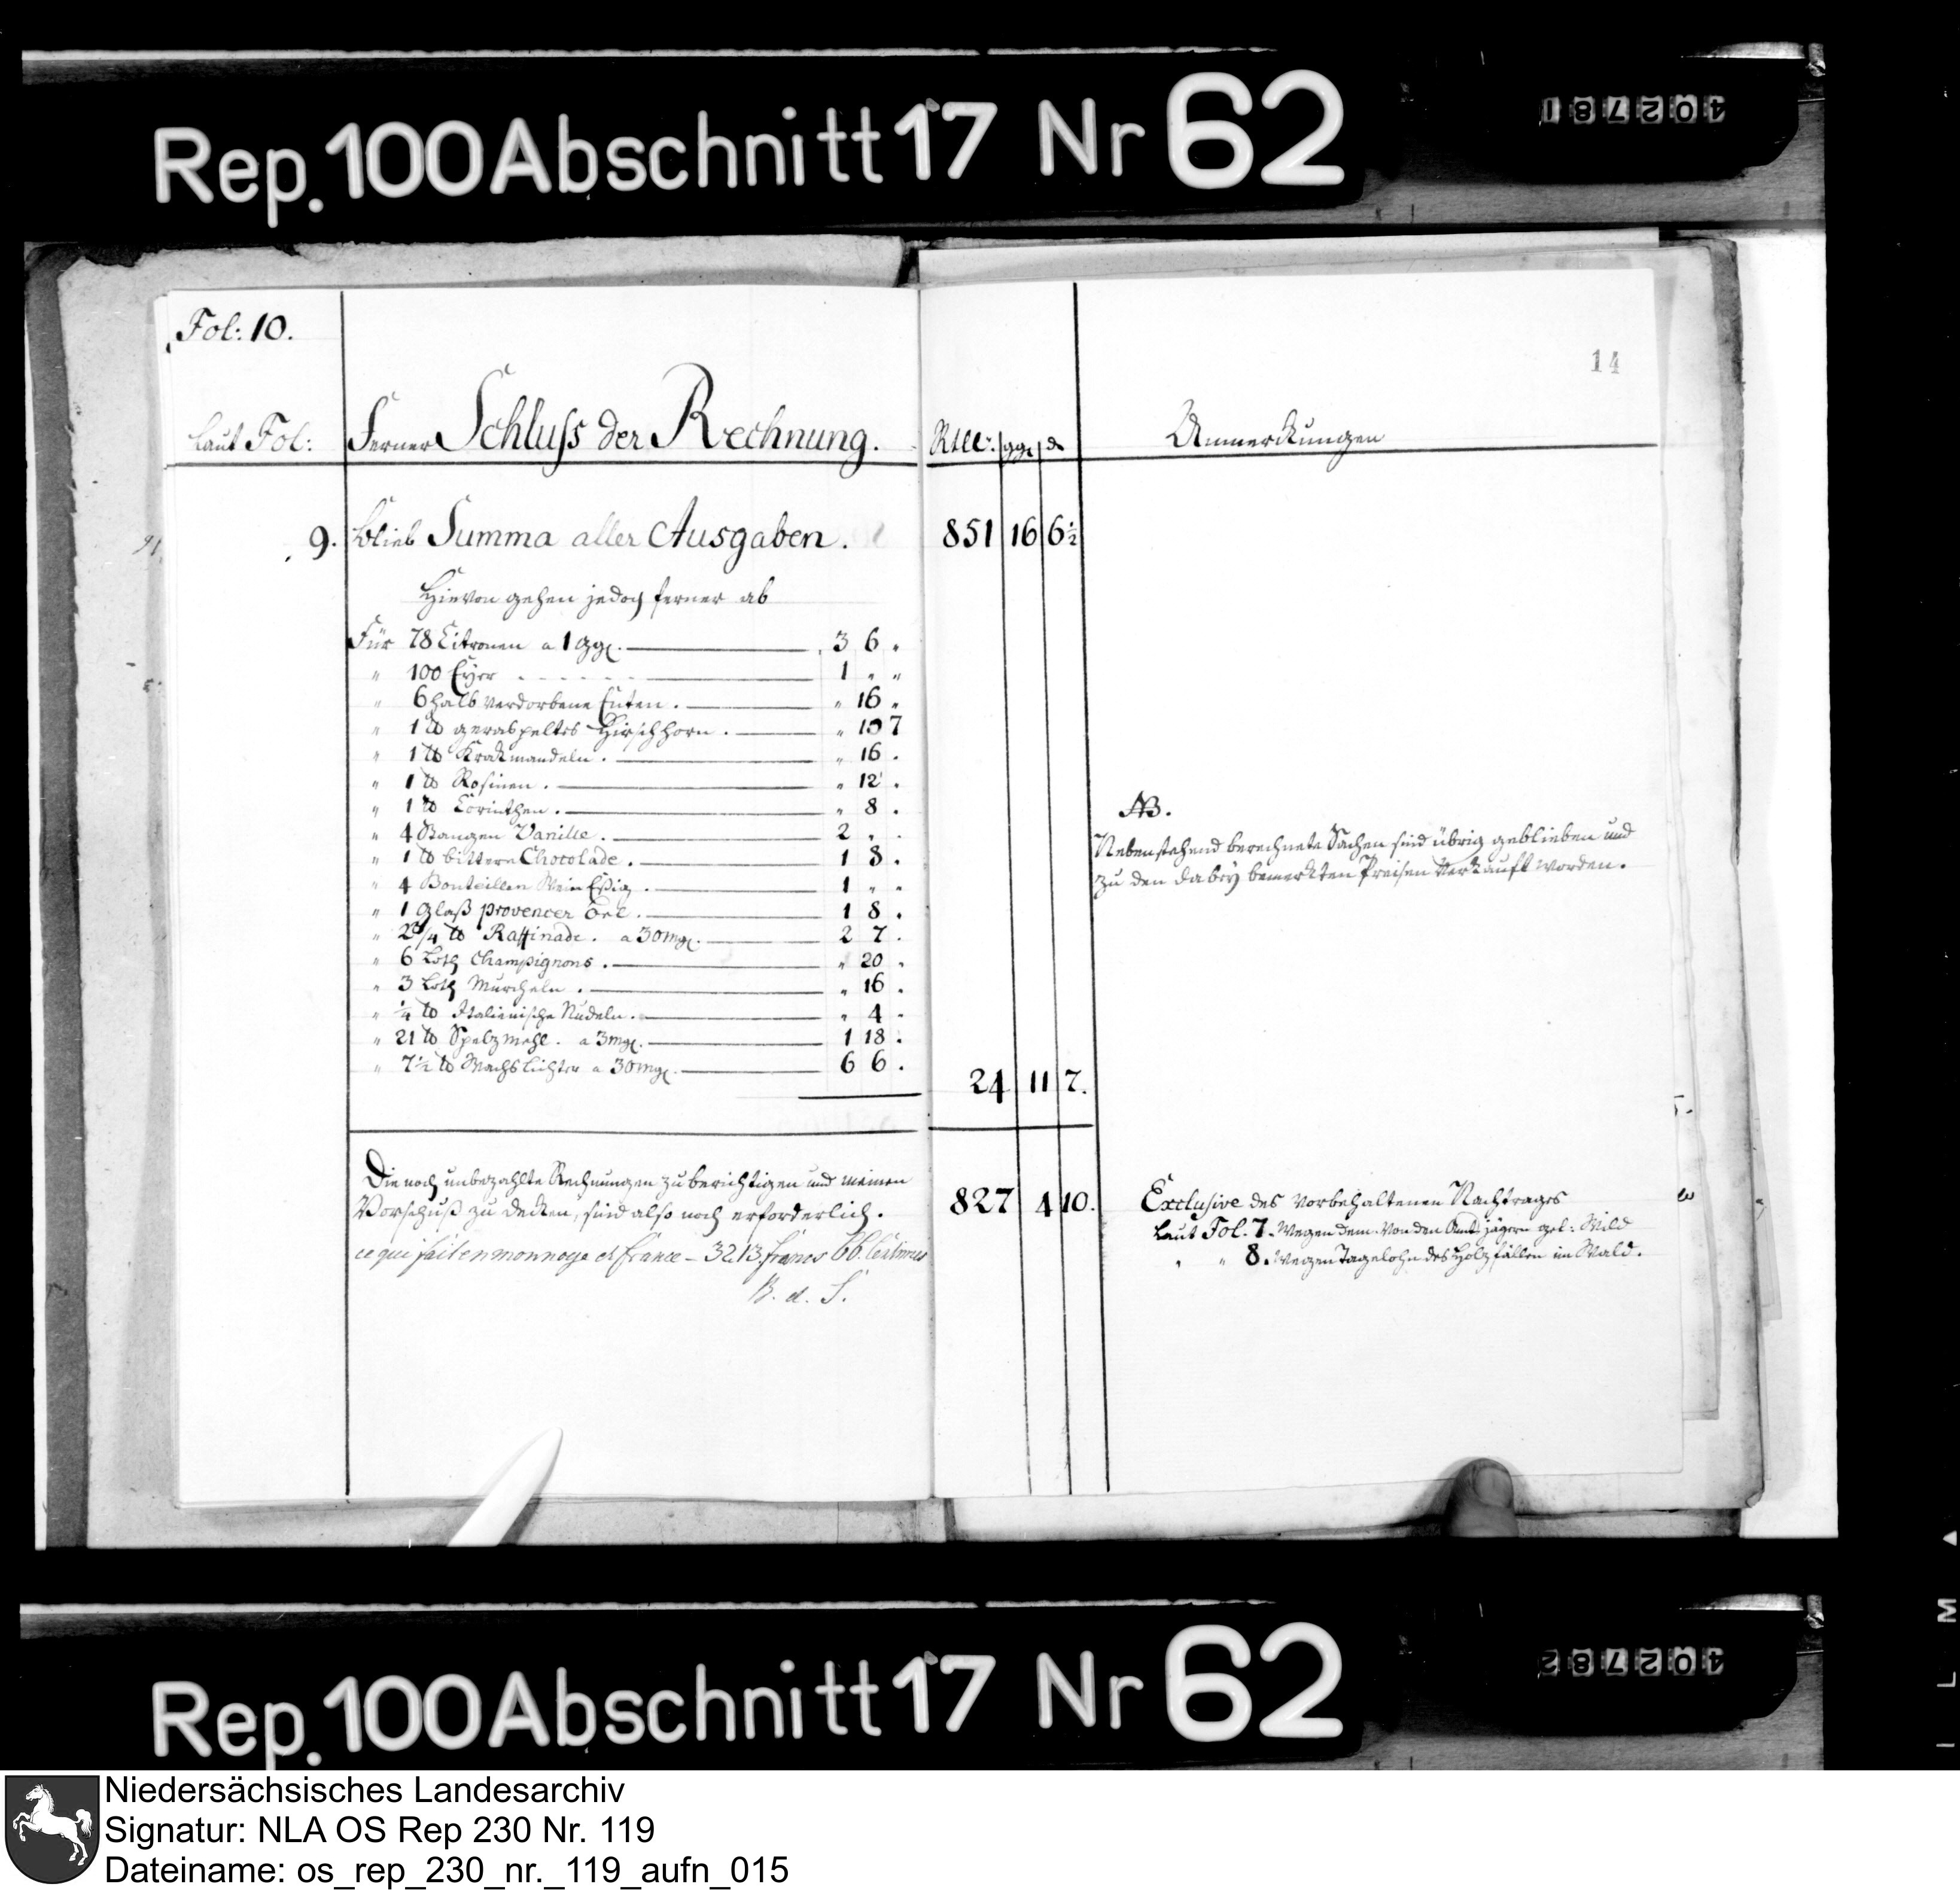 Rep. 100 Abschnitt 17 Nr 62
402781
Fol: 10.
14
Laut Fol: Ferner Schluss der Rechnung. Rtlr: ggr d Anmerckungen
9. blieb Summa aller Ausgaben. 851 16 6½
Hievon gehen jedoch ferner ab
Für 78 Citronen a 1 ggr. 3 6 "
" 100 Eyer 1 " "
" 6 halb verdorbene Enten. " 16 "
" 1 ℔ geraspeltes Hirschhorn. " 10 7
" 1 ℔ Krackmandeln. " 16 .
" 1 ℔ Rosinen. " 12 .
" 1 ℔ Corinthen. " 8 .
" 4 Stangen Vanille. 2 " .
" 1 ℔ bittere Chocolade. 1 8 .
" 4 Bouteillen Wein Eßig. 1 " "
" 1 Glaß provencer Oel. 1 8 .
" 2¾ ℔ Raffinade. a 30 mgr. 2 7 .
" 6 Loth Champignons. " 20 .
" 3 Loth Murcheln. " 16 .
" ¼ ℔ Italienische Nudeln. " 4 .
" 21 ℔ Spelzmehl. a 3 mgr. 1 18 .
" 7½ ℔ Wachslichter a 30 mgr. 6 6 .
24 11 7.
NB.
Nebenstehend berechnete Sachen sind übrig geblieben und
zu den dabey bemerkten Preisen verkauft worden.
Die noch unbezahlte Rechnungen zu berichtigen und meinen
Vorschuß zu decken, sind also noch erforderlich. 827 4 10.
ce qui fait en monnoye de france – 3213 francs 66 Centimes
B. d. S.
Exclusive des vorbehaltenen Nachtrages
Laut Fol. 7. wegen dem von den Amtsjägern gel: Wild
" " 8. wegen Tagelohn des Holzfällen im Wald.
Rep. 100 Abschnitt 17 Nr 62
402782
I L M
Niedersächsisches Landesarchiv
Signatur: NLA OS Rep 230 Nr. 119
Dateiname: os_rep_230_nr._119_aufn_015